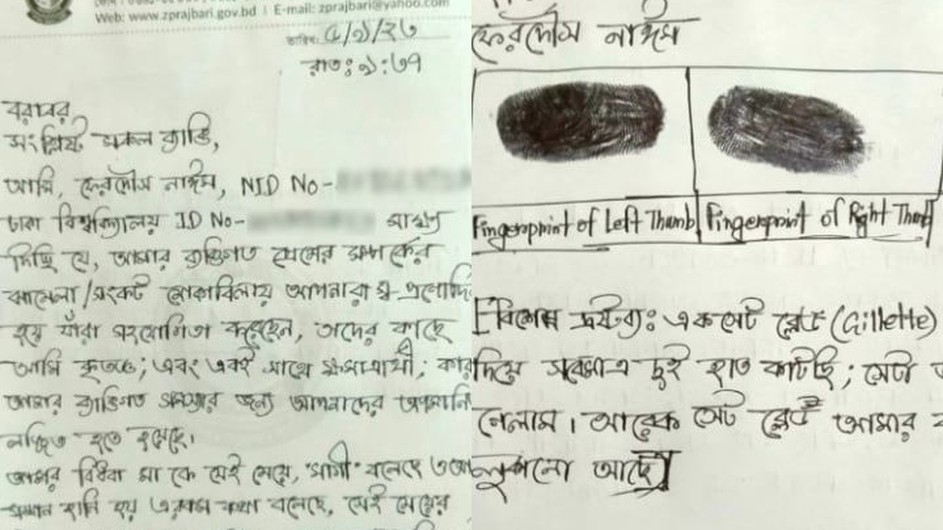 Web: www.zprajbari.gov.bd | E-mail: zprajbari@yahoo.com
তারিখ: ৫/৯/২৩
রাত: ৯:৩৭
বরাবর
সংশ্লিষ্ট সকল ব্যক্তি,
আমি, ফেরদৌস নাঈম, NID No-
ঢাকা বিশ্ববিদ্যালয় ID No- সাক্ষ্য
দিচ্ছি যে, আমার ব্যক্তিগত প্রেমের সম্পর্কের
ঝামেলা/সংকট মোকাবিলায় আপনারা স্ব-প্রণোদি
হয়ে যাঁরা সহযোগিতা করেছেন, তাদের কাছে
আমি কৃতজ্ঞ; এবং একই সাথে ক্ষমাপ্রার্থী; কার
আমার ব্যক্তিগত সমস্যার জন্য আপনাদের অপমানি
লজ্জিত হতে হয়েছে।
আমার বিধবা মা কে সেই মেয়ে, 'মাগী' বলেছে
সম্মান হানি হয় এরকম কথা বলেছে, সেই মেয়ের
ফেরদৌস নাঈম
Fingerprint of Left Thumb
Fingerprint of Right Thumb
[বিশেষ দ্রষ্টব্য: এক সেট ব্লেড (Gillette)
দিয়ে সবেমাত্র দুই হাত কাটছি; সেটা
নেলাম। আরেক সেট ব্লেড আমার
লুকানো আছে]